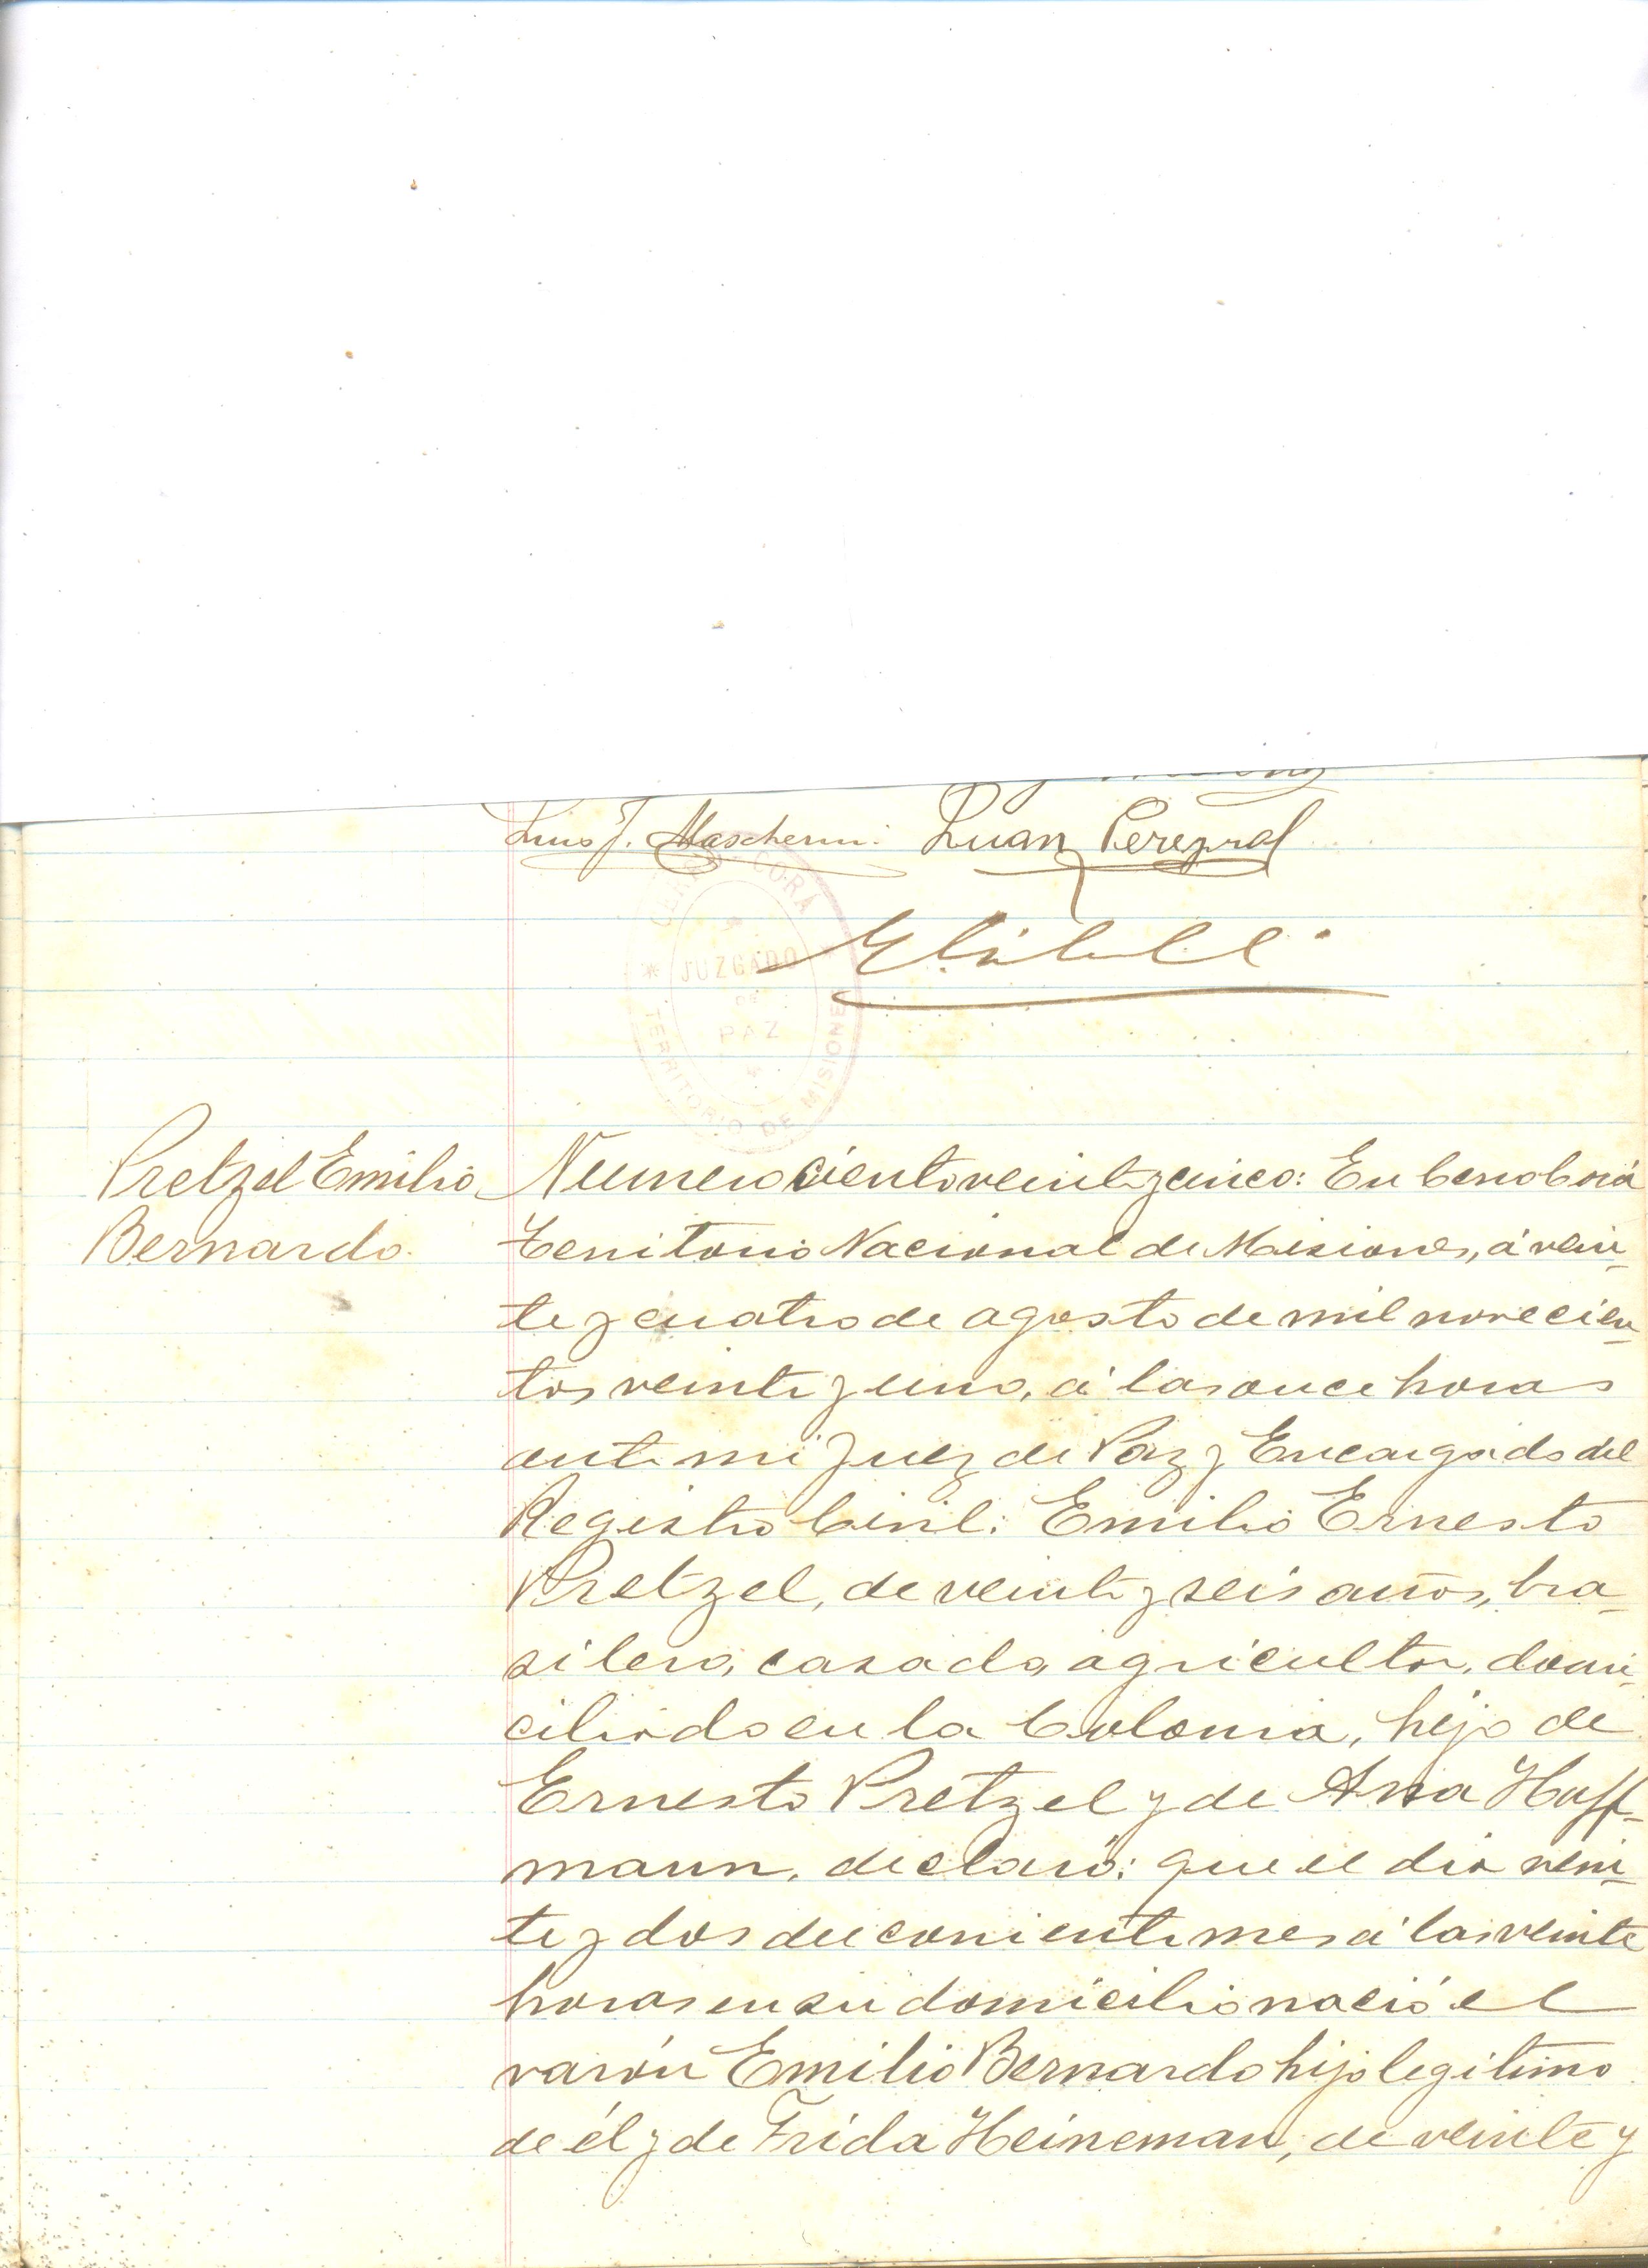 Luis J. Mascheroni. Juan Perezral
CERRO CORÁ
JUZGADO
DE
PAZ
TERRITORIO DE MISIONES
Pretzel Emilio
Bernardo.
Numero ciento veinte y cinco: En Cerro Corá
Territorio Nacional de Misiones, á vein-
te y cuatro de agosto de mil novecien-
tos veinte y uno, á las once horas
ante mi Juez de Paz y Encargado del
Registro Civil: Emilio Ernesto
Pretzel, de veinte y seis años, bra-
silero, casado, agricultor, domi-
ciliado en la Colonia, hijo de
Ernesto Pretzel y de Ana Hoff-
mann, declaró: que el dia vein-
te y dos del corriente mes á las veinte
horas en su domicilio nació el
varón Emilio Bernardo hijo legitimo
de él y de Frida Heineman, de veinte y